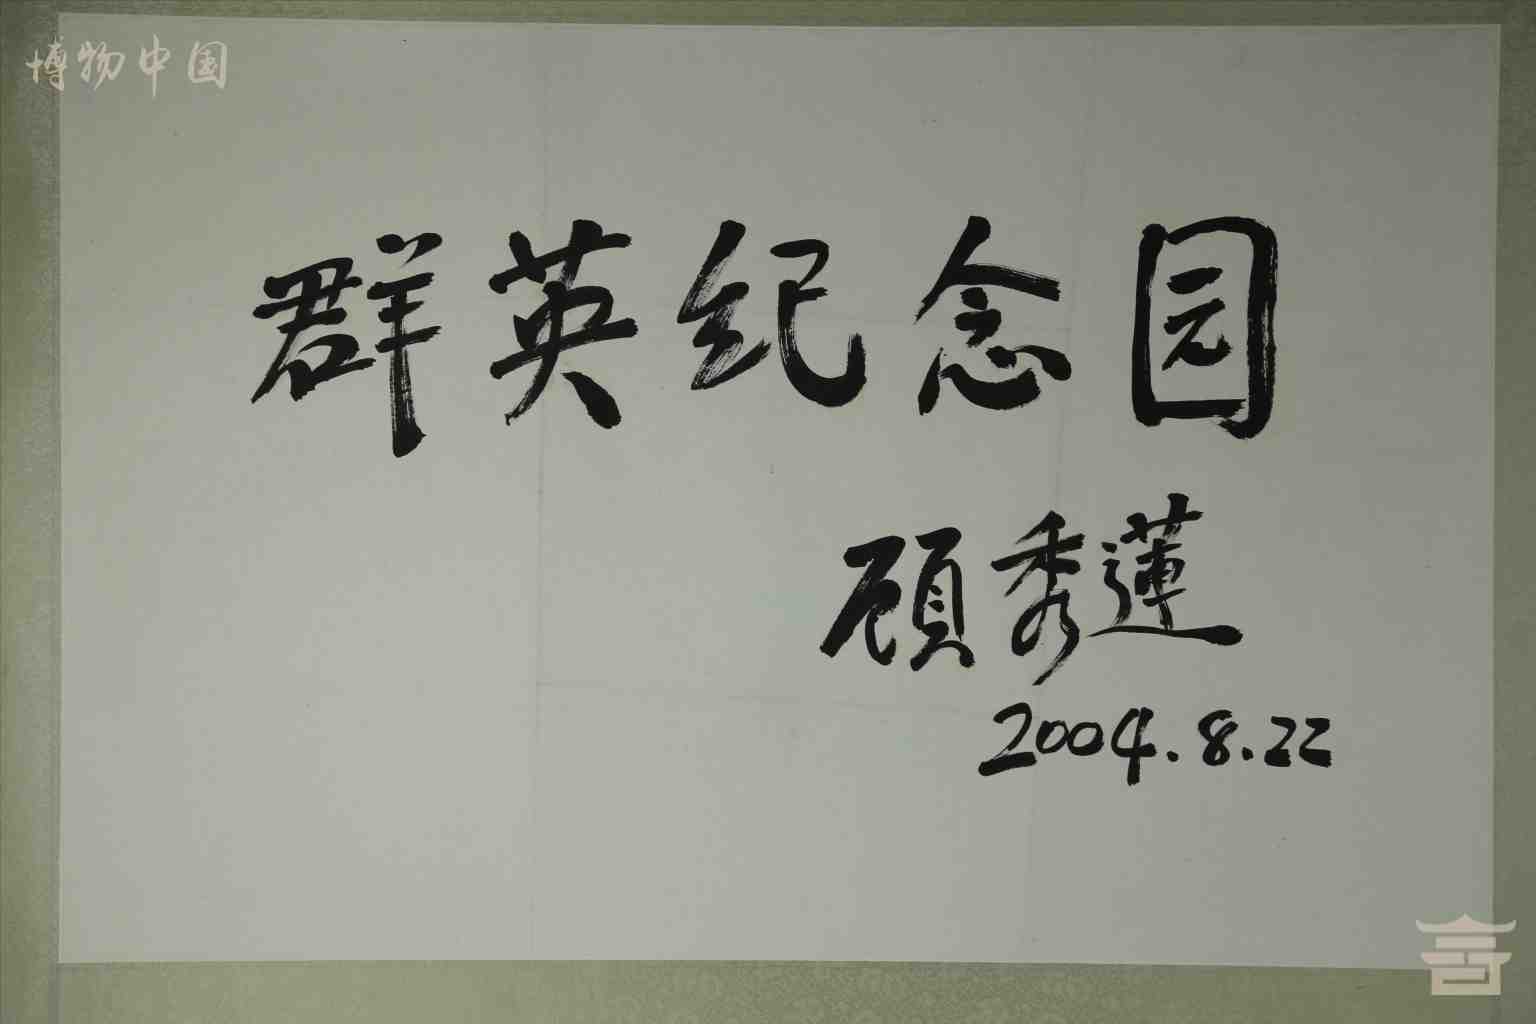 博物中国
群英纪念园
顾秀蓮
2004.8.22